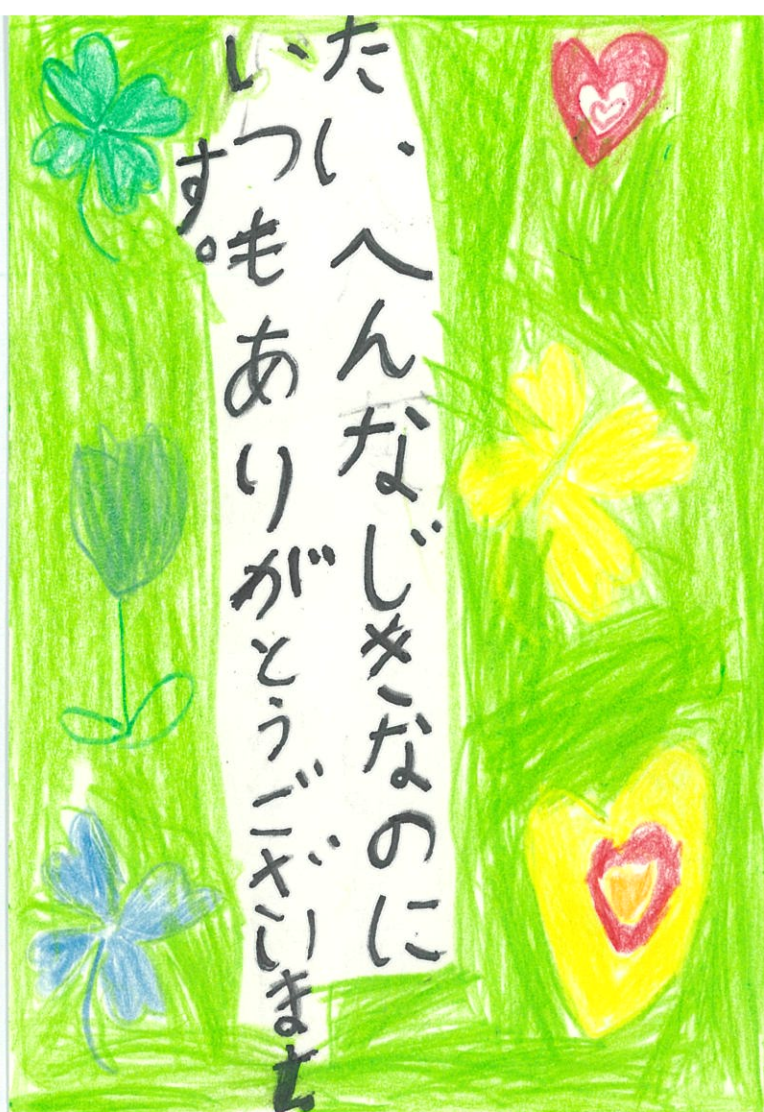 たいへんなじきなのに
いつもありがとうございま
す。